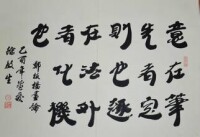 意在筆
先者定
則也趣
在法外
者化機
也
鄭板橋畫論
乙酉年